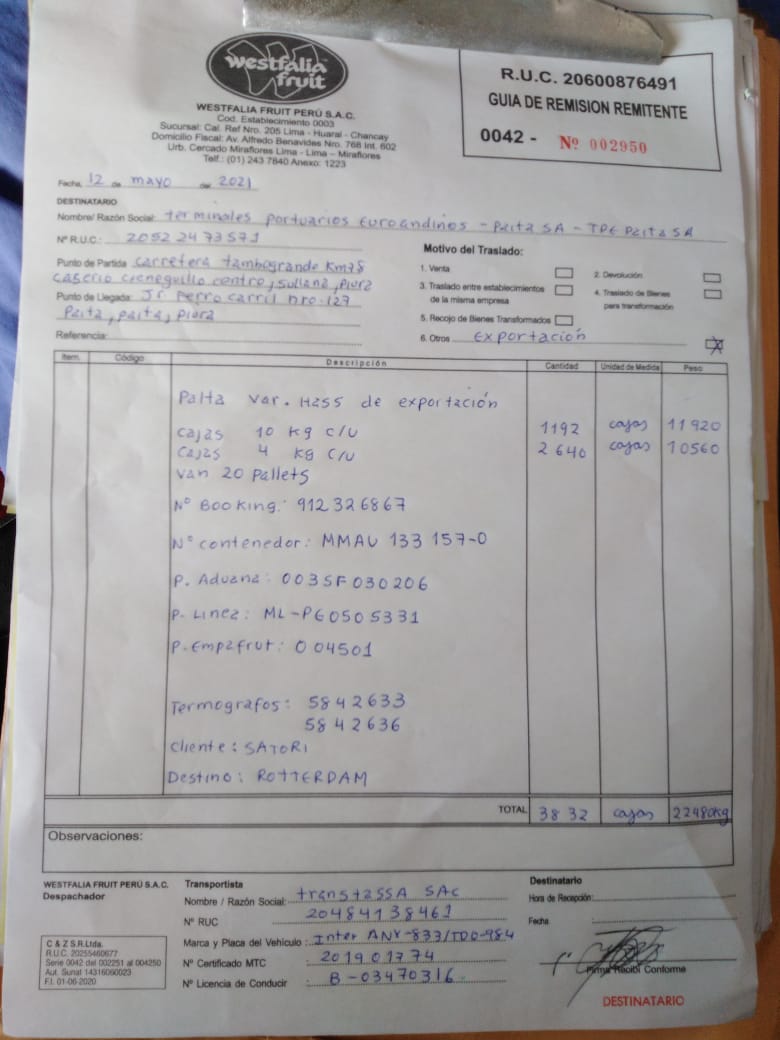 westfalia
fruit
WESTFALIA FRUIT PERÚ S.A.C.
Cod. Establecimiento 0003
Sucursal: Cal. Ref Nro. 205 Lima - Huaral - Chancay
Domicilio Fiscal: Av. Alfredo Benavides Nro. 768 Int. 602
Urb. Cercado Miraflores Lima - Lima - Miraflores
Telf.: (01) 243 7840 Anexo: 1223
R.U.C. 20600876491
GUIA DE REMISION REMITENTE
0042 - Nº 002950
Fecha, 12 de mayo del 2021
DESTINATARIO
Nombre/ Razón Social: terminales portuarios Euroandinos - Paita SA - TPE Paita SA
Nº R.U.C.: 20522473571
Punto de Partida: carretera tambogrande Km78
caserio cieneguillo centro, sullana, piura
Punto de Llegada: Jr Ferro carril nro. 127
Paita, paita, piura
Referencia:
Motivo del Traslado:
1. Venta
2. Devolución
3. Traslado entre establecimientos
de la misma empresa
4. Traslado de Bienes
para transformación
5. Recojo de Bienes Transformados
6. Otros Exportación X
Item. Código Descripción Cantidad Unidad de Medida Peso
Palta var. Hass de exportación
cajas 10 kg c/u 1192 cajas 11920
cajas 4 kg c/u 2640 cajas 10560
van 20 pallets
Nº Booking: 912326867
Nº contenedor: MMAU 133 157-0
P. Aduana: 003SF030206
P. Linea: ML-PE0505331
P. Empafrut: 004501
Termografos: 5842633
5842636
cliente: SATORI
Destino: ROTTERDAM
TOTAL 3832 cajas 22480kg
Observaciones:
WESTFALIA FRUIT PERÚ S.A.C.
Despachador
C & Z S.R.Ltda.
R.U.C. 20255460677
Serie 0042 del 002251 al 004250
Aut. Sunat 14316060023
F.I. 01-06-2020
Transportista
Nombre / Razón Social: transtassa SAC
Nº RUC 20484138461
Marca y Placa del Vehículo: Inter ANY-833/TDD-984
Nº Certificado MTC 201901774
Nº Licencia de Conducir : B-03470316
Destinatario
Hora de Recepción:
Fecha
Firma Recibí Conforme
DESTINATARIO